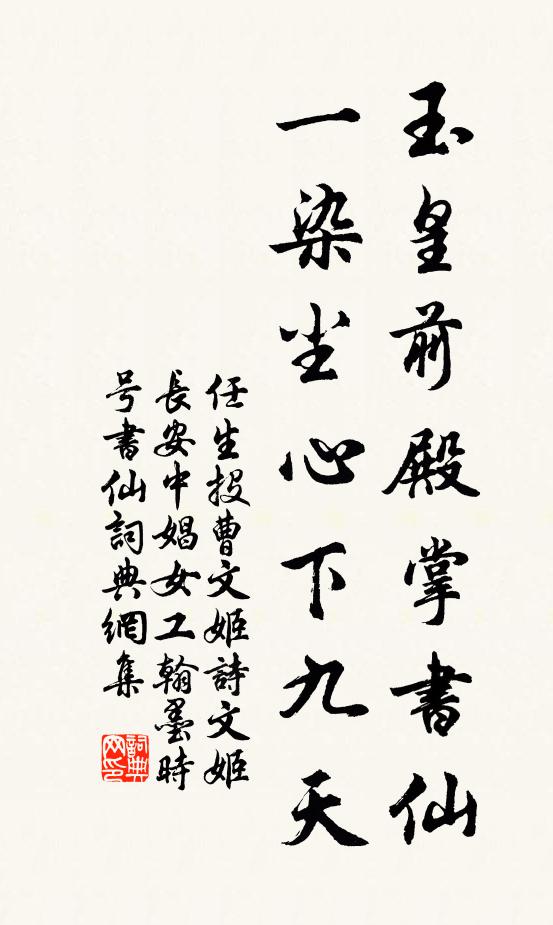 玉皇前殿掌書仙
一染尘心下九天
任生投曹文姬詩文姬
長安中娼女工翰墨時
号書仙詞典網集
詞典
网印